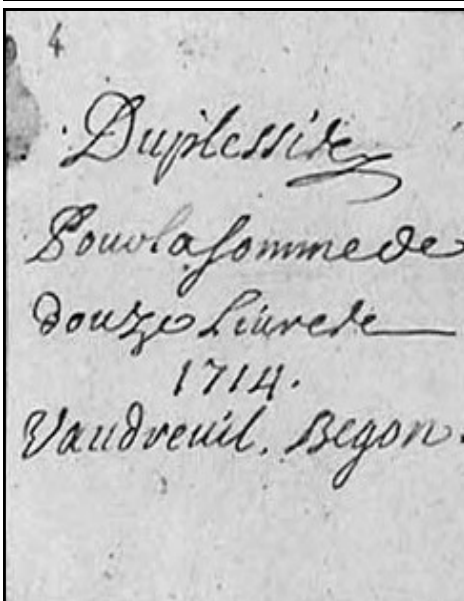 4
Duplessis
Pour la somme de
douze Livres
1714.
Vaudreuil. Begon.